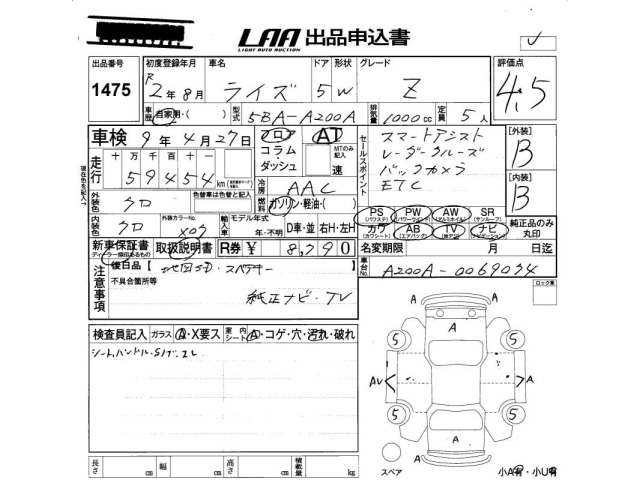 LAA 出品申込書
LIGHT AUTO AUCTION
出品番号 初度登録年月 車名 ドア 形状 グレード 評価点
1475 R 2年8月 ライズ 5 W Z 4.5
車歴 自家用・( ) 型式 5BA-A200A 排気量 1000cc 定員 5人
車検 9年4月27日 フロア コラム・ダッシュ AT MTのみ記入 速
走行 十万千百十
59454 km
セールスポイント
スマートアシスト
レーダークルーズ
バックカメラ
ETC
[外装] B
[内装] B
冷房 AAC
外装色 クロ 色替車は色替と記入 燃料 ガソリン・軽油・( )
内装色 クロ 外装カラーNo. X07 輸入車 モデル年式 年・不明 D車・並 右H・左H
PS (パワステ) PW (パワーウインド) AW (アルミホイル) SR (サンルーフ)
カワ (カワシート) AB (エアバッグ) TV ナビ (ナビゲーション)
純正品のみ丸印
新車保証書 取扱説明書 R券 ¥ 8,790 名変期限 月 日迄
注意事項 後日品【 スペアキー
不具合箇所等
純正ナビ・TV
車台No. A200A-0069034
ロック車
検査員記入 ガラス A・X要ス 室内シート A・コゲ・穴・汚れ・破れ
シート、ハンドル・
A
5 5
AV A
5 5
A
スペア
小A有・小U有
長さ cm 幅 cm 高さ cm 積載量 kg